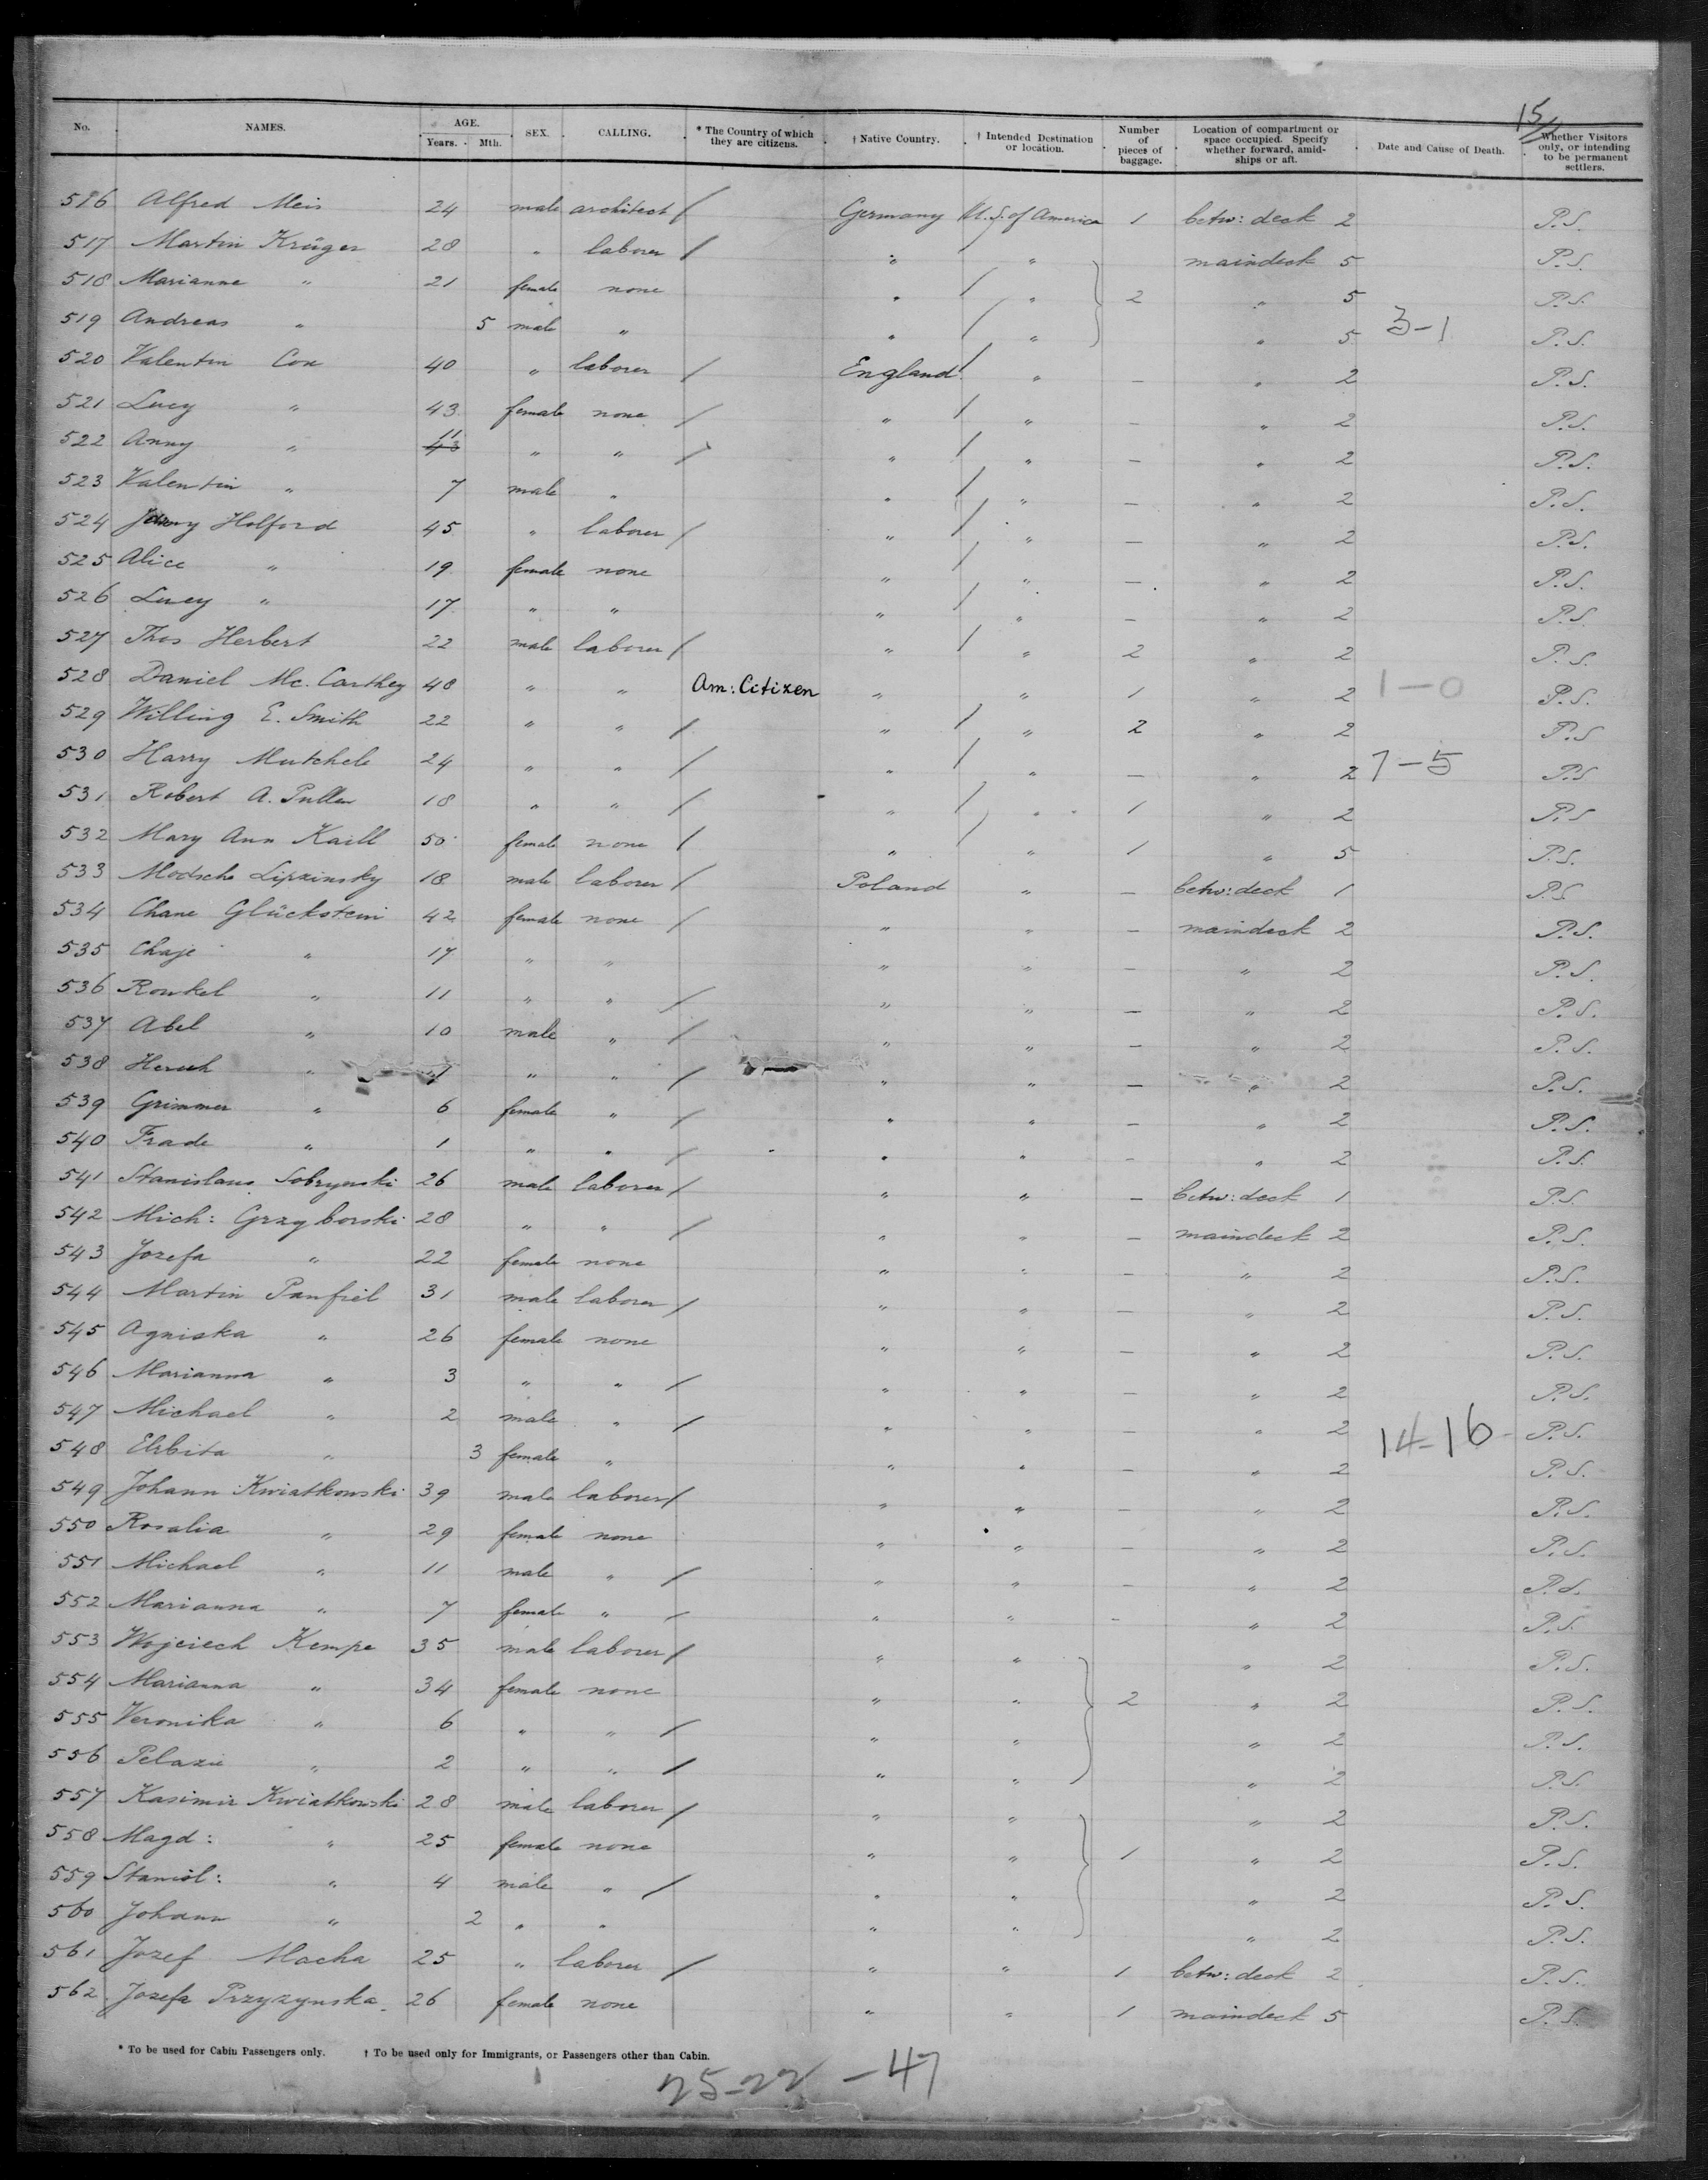 15/
No. NAMES. AGE. Years. Mth. SEX. CALLING. * The Country of which they are citizens. † Native Country. † Intended Destination or location. Number of pieces of baggage. Location of compartment or space occupied. Specify whether forward, amidships or aft. Date and Cause of Death. Whether Visitors only, or intending to be permanent settlers.
516 Alfred Meis 24 male architect / Germany U.S. of America 1 betw: deck 2 P.S.
517 Martin Krüger 28 " laborer / " " maindeck 5 P.S.
518 Marianne " 21 female none " / " 2 " 5 P.S.
519 Andreas " 5 male " " / " " 5 3-1 P.S.
520 Valentin Cox 40 " laborer / England / " - " 2 P.S.
521 Lucy " 43 female none / " / " - " 2 P.S.
522 Anny " 11 " " / " / " - " 2 P.S.
523 Valentin " 7 male " " / " - " 2 P.S.
524 Holford 45 " laborer / " / " - " 2 P.S.
525 Alice " 19 female none " / " - " 2 P.S.
526 Lucy " 17 " " " / " - " 2 P.S.
527 Thos Herbert 22 male laborer / " / " 2 " 2 P.S.
528 Daniel Mc. Carthey 48 " " Am: Citizen " " 1 " 2 1-0 P.S.
529 Willing E. Smith 22 " " / " / " 2 " 2 P.S
530 Harry Mutchele 24 " " / " / " - " 2 7-5 P.S
531 Robert A. Pullen 18 " " / " / " 1 " 2 P.S
532 Mary Ann Kaill 50 female none / " / " 1 " 5 P.S.
533 Modsche Lipzinsky 18 male laborer / Poland " - betw: deck 1 P.S.
534 Chane Glückstein 42 female none / " " - maindeck 2 P.S.
535 Chaje " 17 " " " " - " 2 P.S.
536 Ronkel " 11 " " / " " - " 2 P.S.
537 Abel " 10 male " / " " - " 2 P.S.
538 Hersch " 7 " " / " " - " 2 P.S.
539 Grimmer " 6 female " / " " - " 2 P.S.
540 Frade " 1 " " / " " - " 2 P.S.
541 Stanislaus Sobrynski 26 male laborer / " " - betw: deck 1 P.S.
542 Mich: Grzyborski 28 " " / " " - maindeck 2 P.S.
543 Jozefa " 22 female none " " - " 2 P.S.
544 Martin Panfiel 31 male laborer / " " - " 2 P.S.
545 Agniska " 26 female none " " - " 2 P.S.
546 Marianna " 3 " " / " " - " 2 P.S.
547 Michael " 2 male " / " " - " 2 14-16 P.S.
548 Elsbita " 3 female " " " - " 2 P.S.
549 Johann Kwiatkowski 39 male laborer / " " - " 2 P.S.
550 Rosalia " 29 female none " " - " 2 P.S.
551 Michael " 11 male " / " " - " 2 P.S.
552 Marianna " 7 female " / " " - " 2 P.S.
553 Wojciech Kempe 35 male laborer / " " " 2 P.S.
554 Marianna " 34 female none " " 2 " 2 P.S.
555 Veronika " 6 " " / " " " 2 P.S.
556 Pelazie " 2 " " / " " " 2 P.S.
557 Kasimir Kwiatkowski 28 male laborer / " " " 2 P.S.
558 Magd: " 25 female none " " 1 " 2 P.S.
559 Stanisl: " 4 male " / " " " 2 P.S.
560 Johann " 2 " " " " " 2 P.S.
561 Jozef Macha 25 " laborer / " " 1 betw: deck 2 P.S.
562 Jozefa Przyzynska 26 female none " " 1 maindeck 5 P.S.
* To be used for Cabin Passengers only. † To be used only for Immigrants, or Passengers other than Cabin.
25-22 - 47